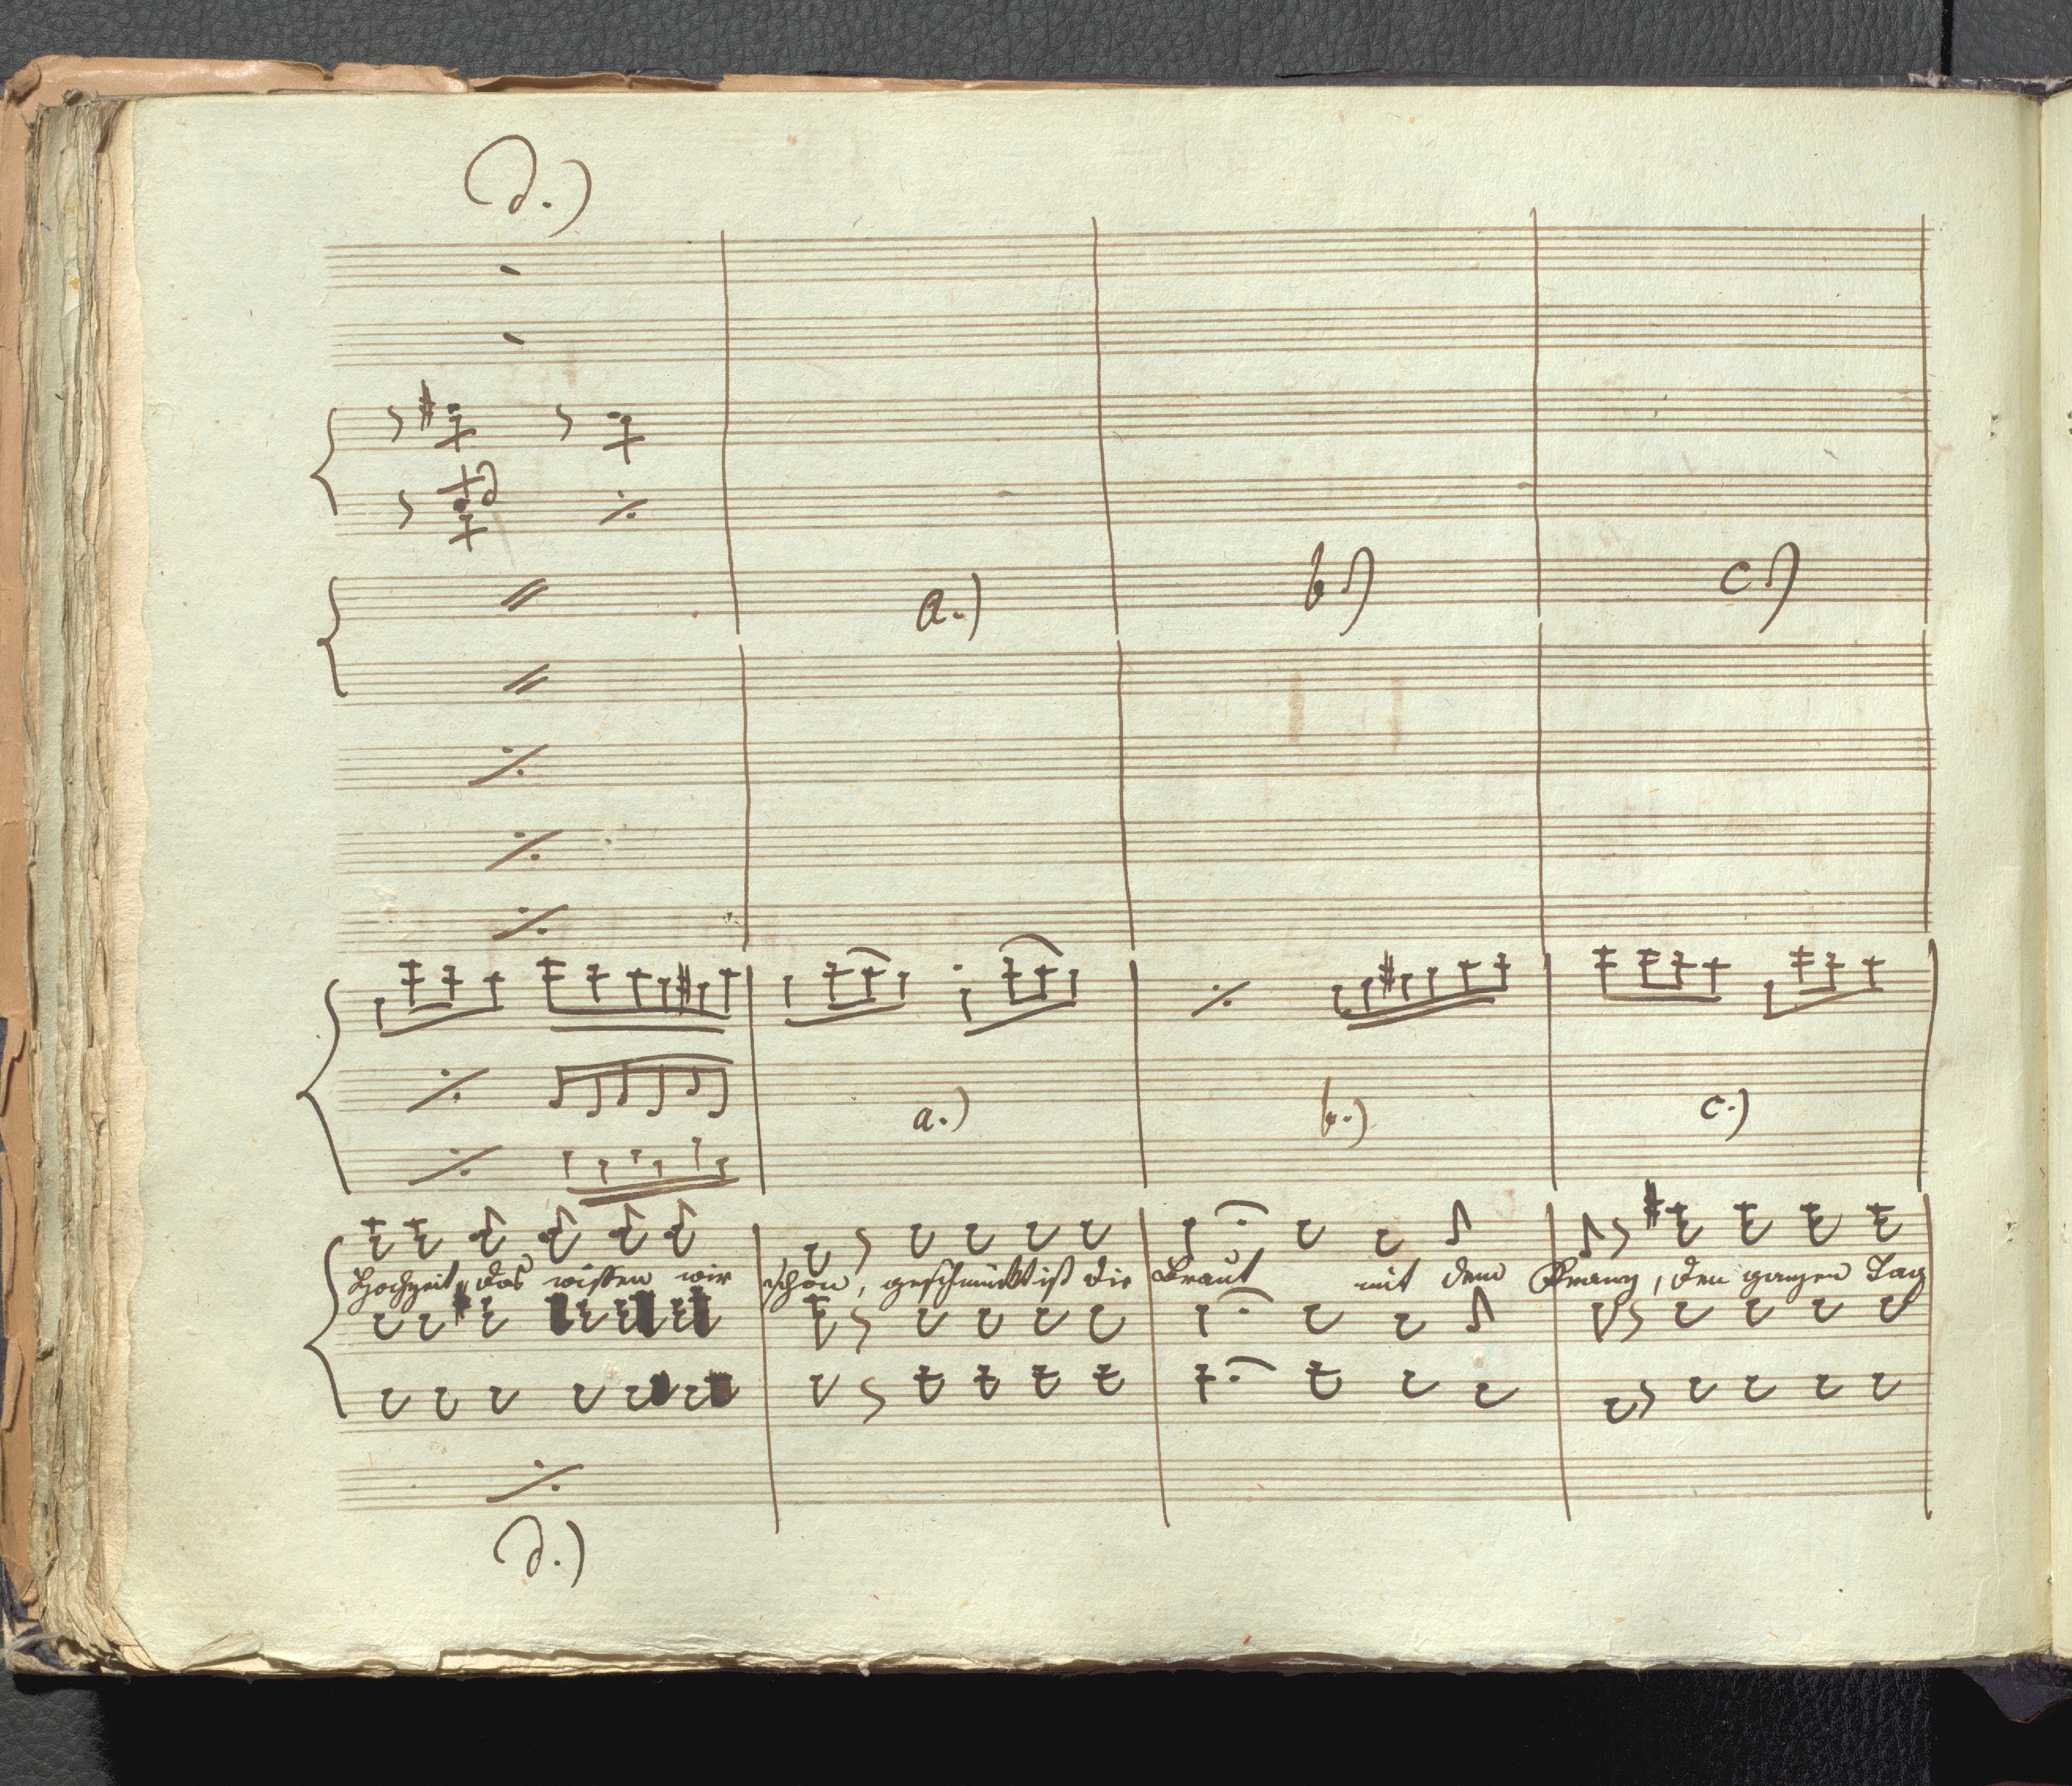 d.)
a.) b.) c.)
a.) b.) c.)
Hochzeit, das wissen wir schon, geschmückt ist die Braut mit dem Kranz, den ganzen Tag
d.)